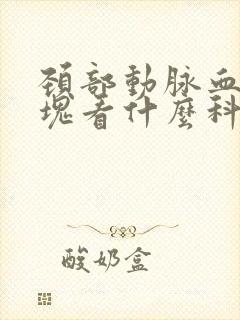 頸部動脉血
塊看什麼科
酸奶盒